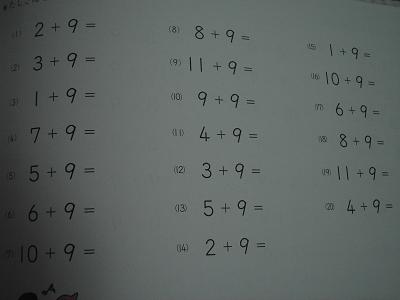 (1) 2 + 9 =
(2) 3 + 9 =
(3) 1 + 9 =
(4) 7 + 9 =
(5) 5 + 9 =
(6) 6 + 9 =
(7) 10 + 9 =
(8) 8 + 9 =
(9) 11 + 9 =
(10) 9 + 9 =
(11) 4 + 9 =
(12) 3 + 9 =
(13) 5 + 9 =
(14) 2 + 9 =
(15) 1 + 9 =
(16) 10 + 9 =
(17) 6 + 9 =
(18) 8 + 9 =
(19) 11 + 9 =
(20) 4 + 9 =